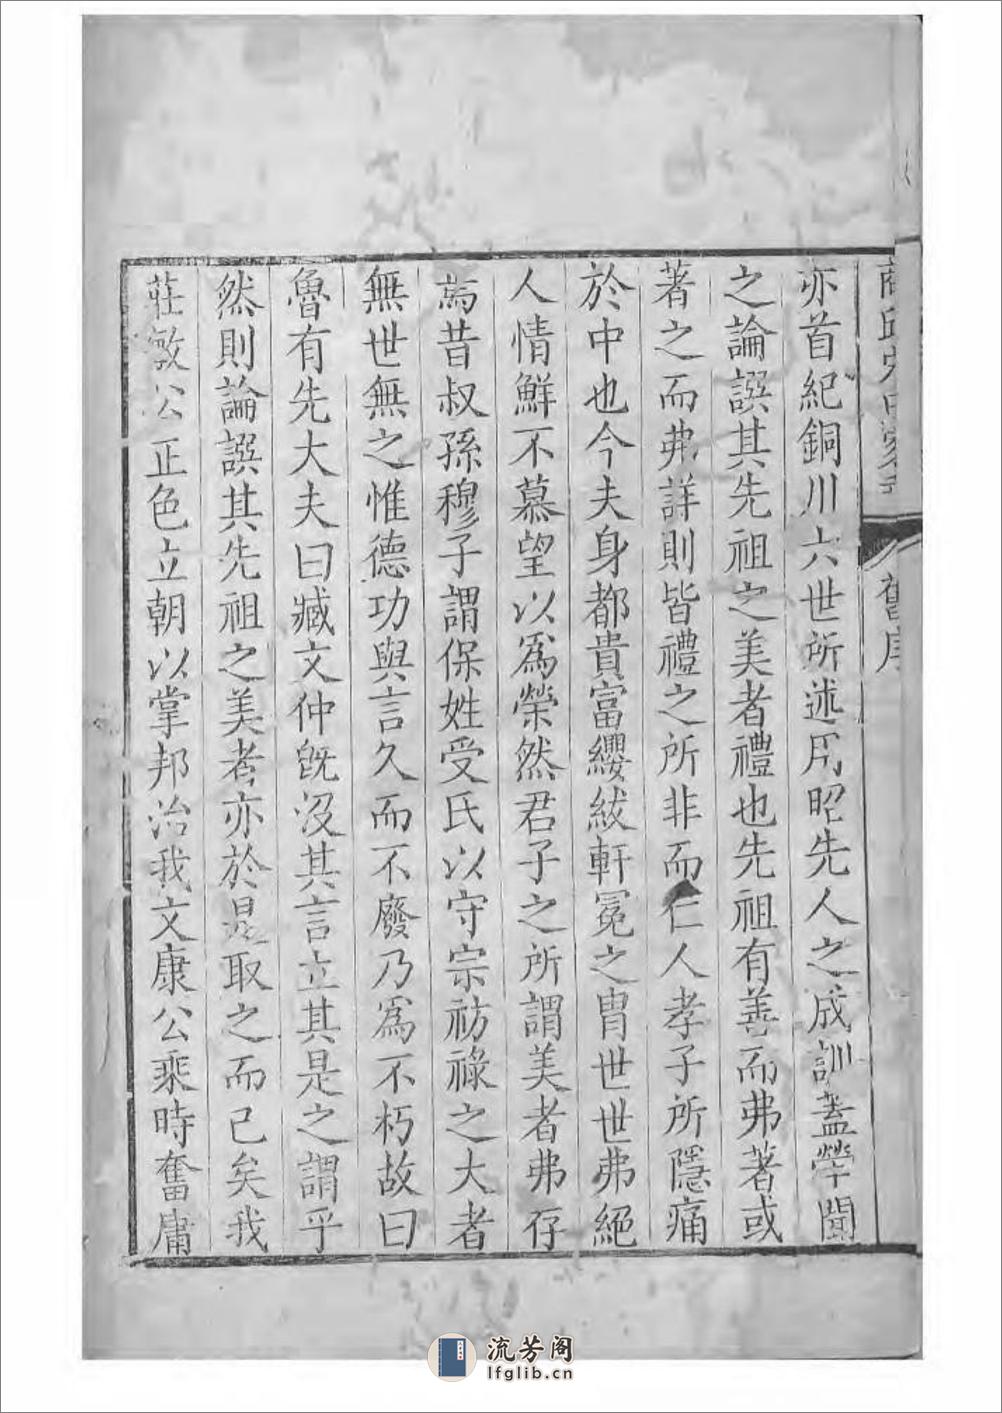 商邱宋氏家乘
舊序
亦首紀銅川六世所述用昭先人之成訓蓋犖聞
之論譔其先祖之美者禮也先祖有善而弗著或
著之而弗詳則皆禮之所非而仁人孝子所隱痛
於中也今夫身都貴富纓紱軒冕之胄世世弗絕
人情鮮不慕望以為榮然君子之所謂美者弗存
焉昔叔孫穆子謂保姓受氏以守宗祊祿之大者
無世無之惟德功與言久而不廢乃為不朽故曰
魯有先大夫曰臧文仲旣沒其言立其是之謂乎
然則論譔其先祖之美者亦於是取之而已矣我
莊敏公正色立朝以掌邦治我文康公乘時奮庸
流芳阁
lfglib.cn